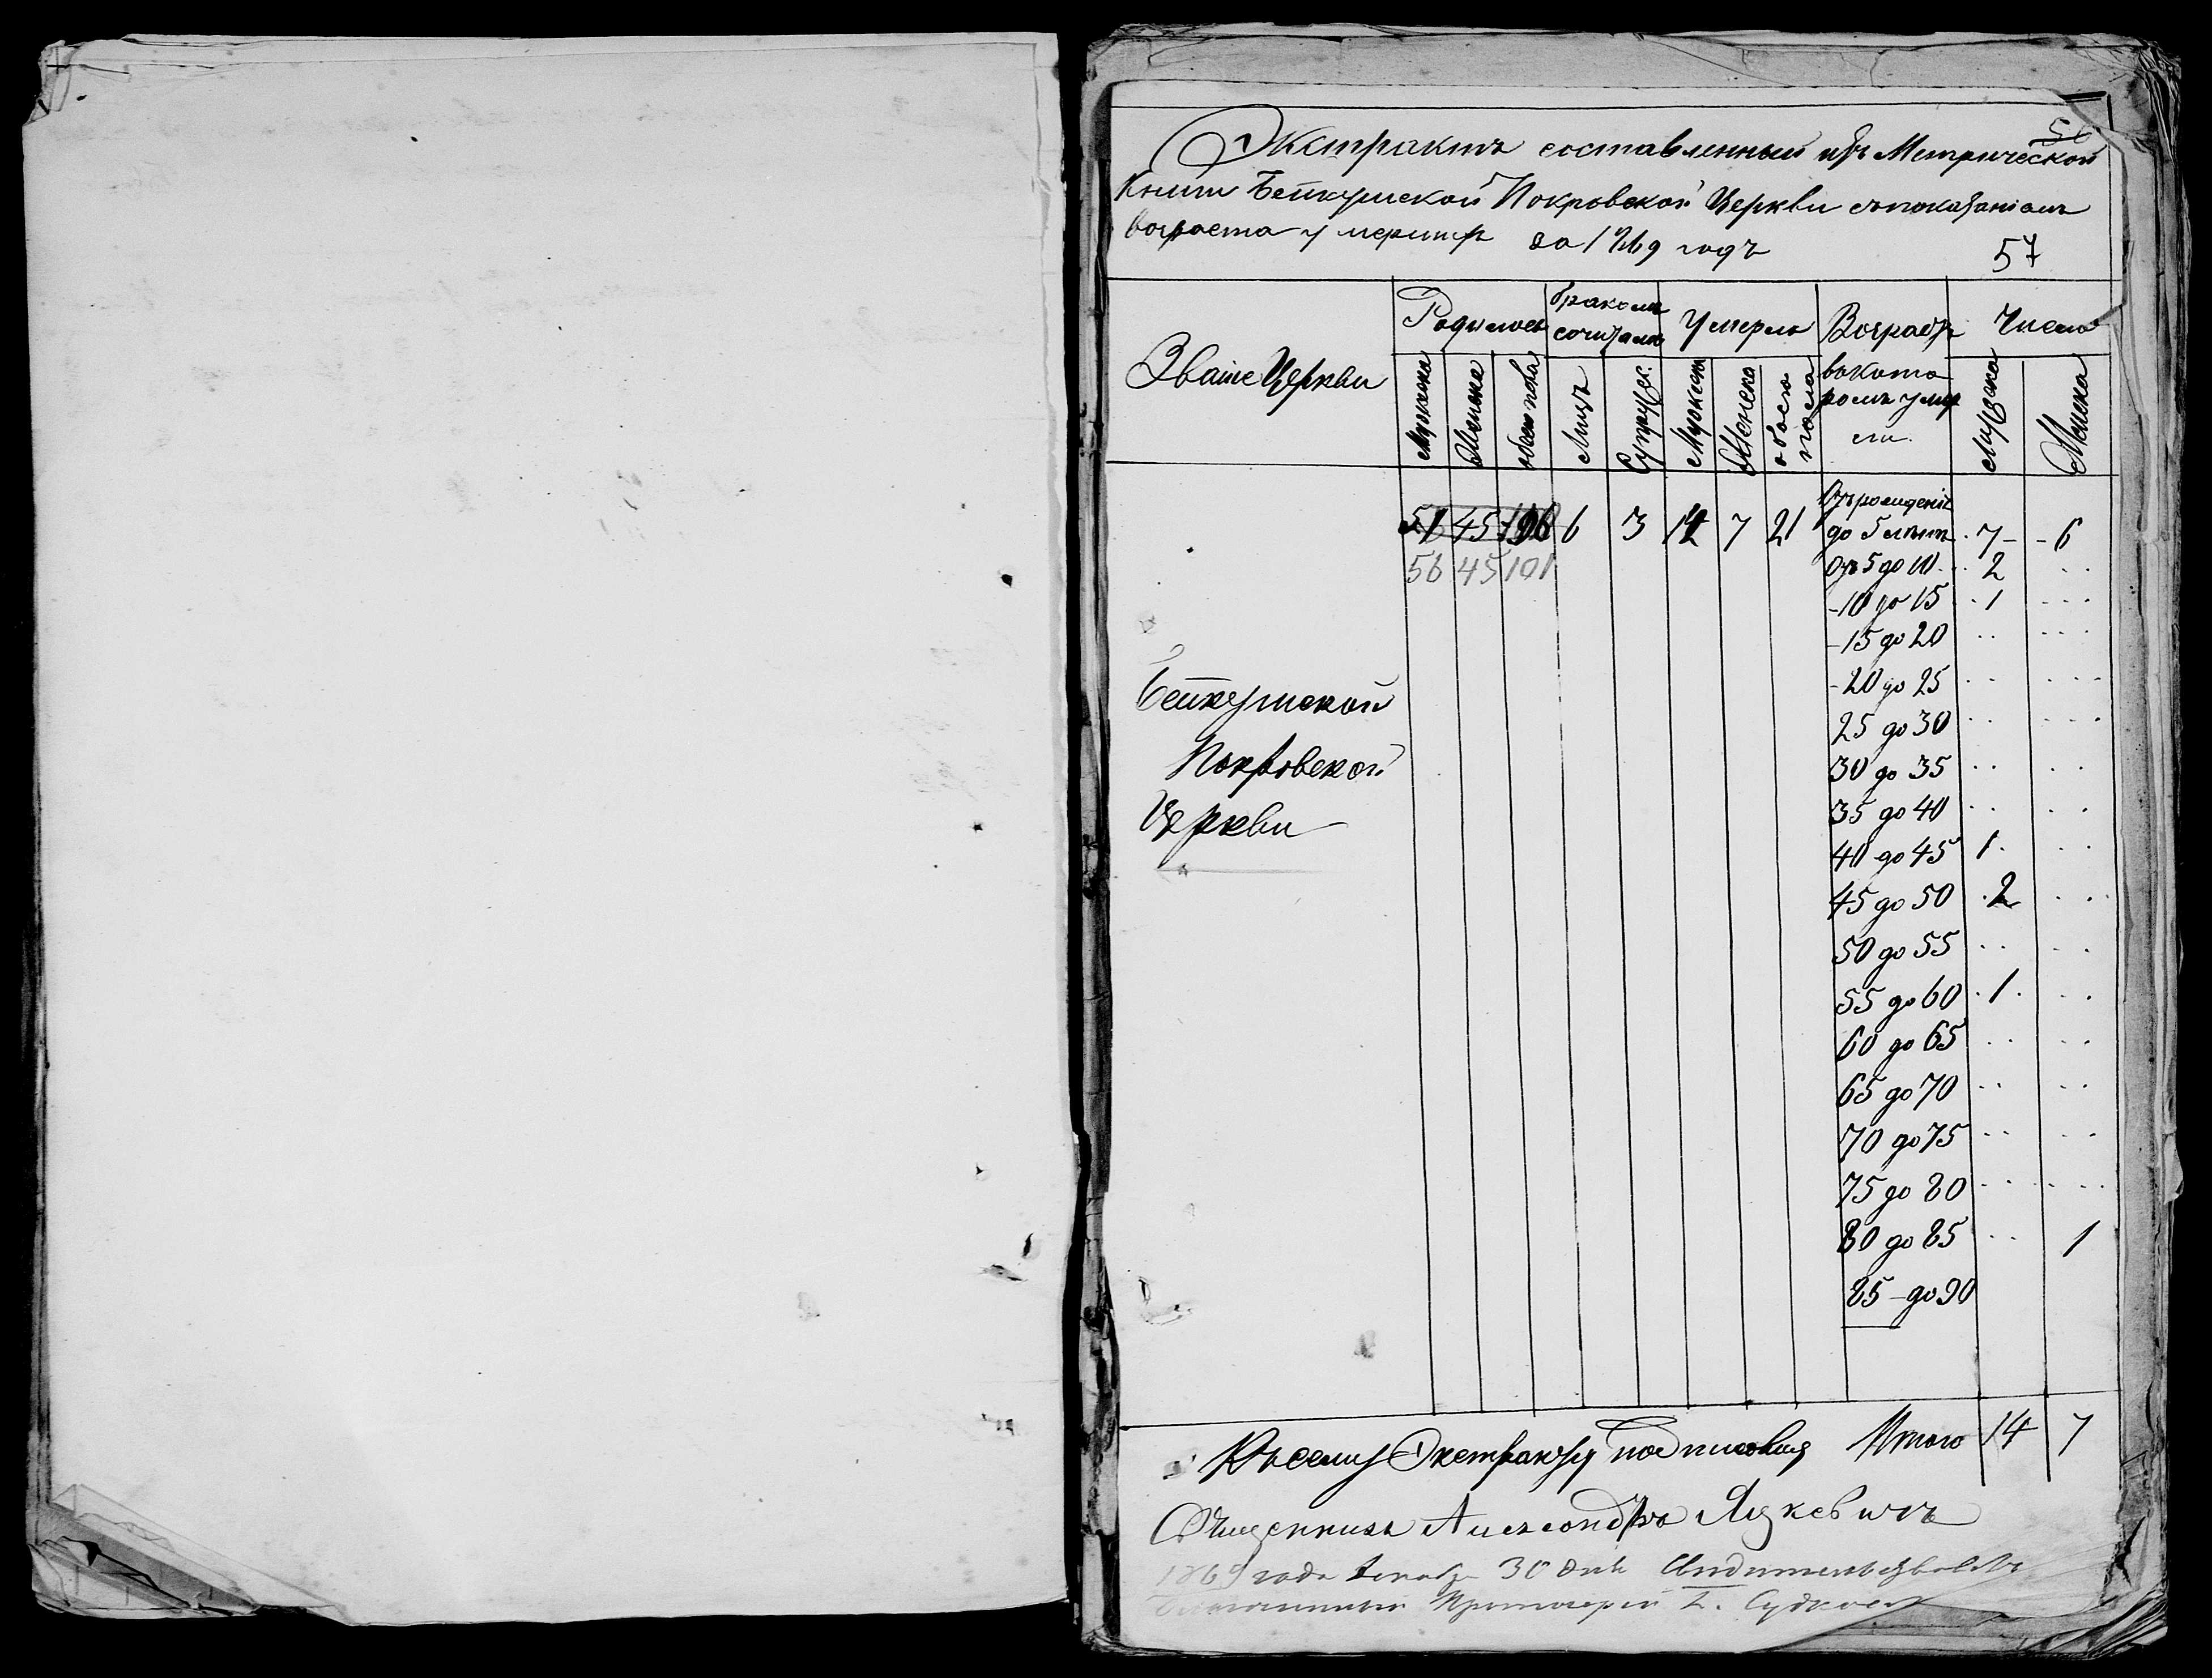 Экстрактъ составленный изъ Метрической
Книги Бейкушской Покровской Церкви съ показаніемъ
возраста умершихъ за 1869 годъ
57
Званіе Церкви
Родилось
бракомъ
сочитались
Умерло
Возрастъ
Число
Мужеска
Женска
обоего пола
Лицъ
Супруж.
Мужеск
Женска
обоего
пола
въ кото
ромъ умер
ли.
Мужеска
Женска
51 45 6 3 14 7 21
56 45 101
Отъ рожденія
до 5 летъ 7 - - 6
Отъ 5 до 10 2
- 10 до 15 1
- 15 до 20
- 20 до 25
25 до 30
30 до 35
35 до 40
40 до 45 1
45 до 50 2
50 до 55
55 до 60 1
60 до 65
65 до 70
70 до 75
75 до 80
80 до 85 1
85 - до 90
Бейкушской
Покровской
Церкви
Къ сему Экстракту подписовался Итого 14 7
Священникъ Александръ Яцкевичъ
1869 года Декабр 30 дня
Благочинный Протоіерей